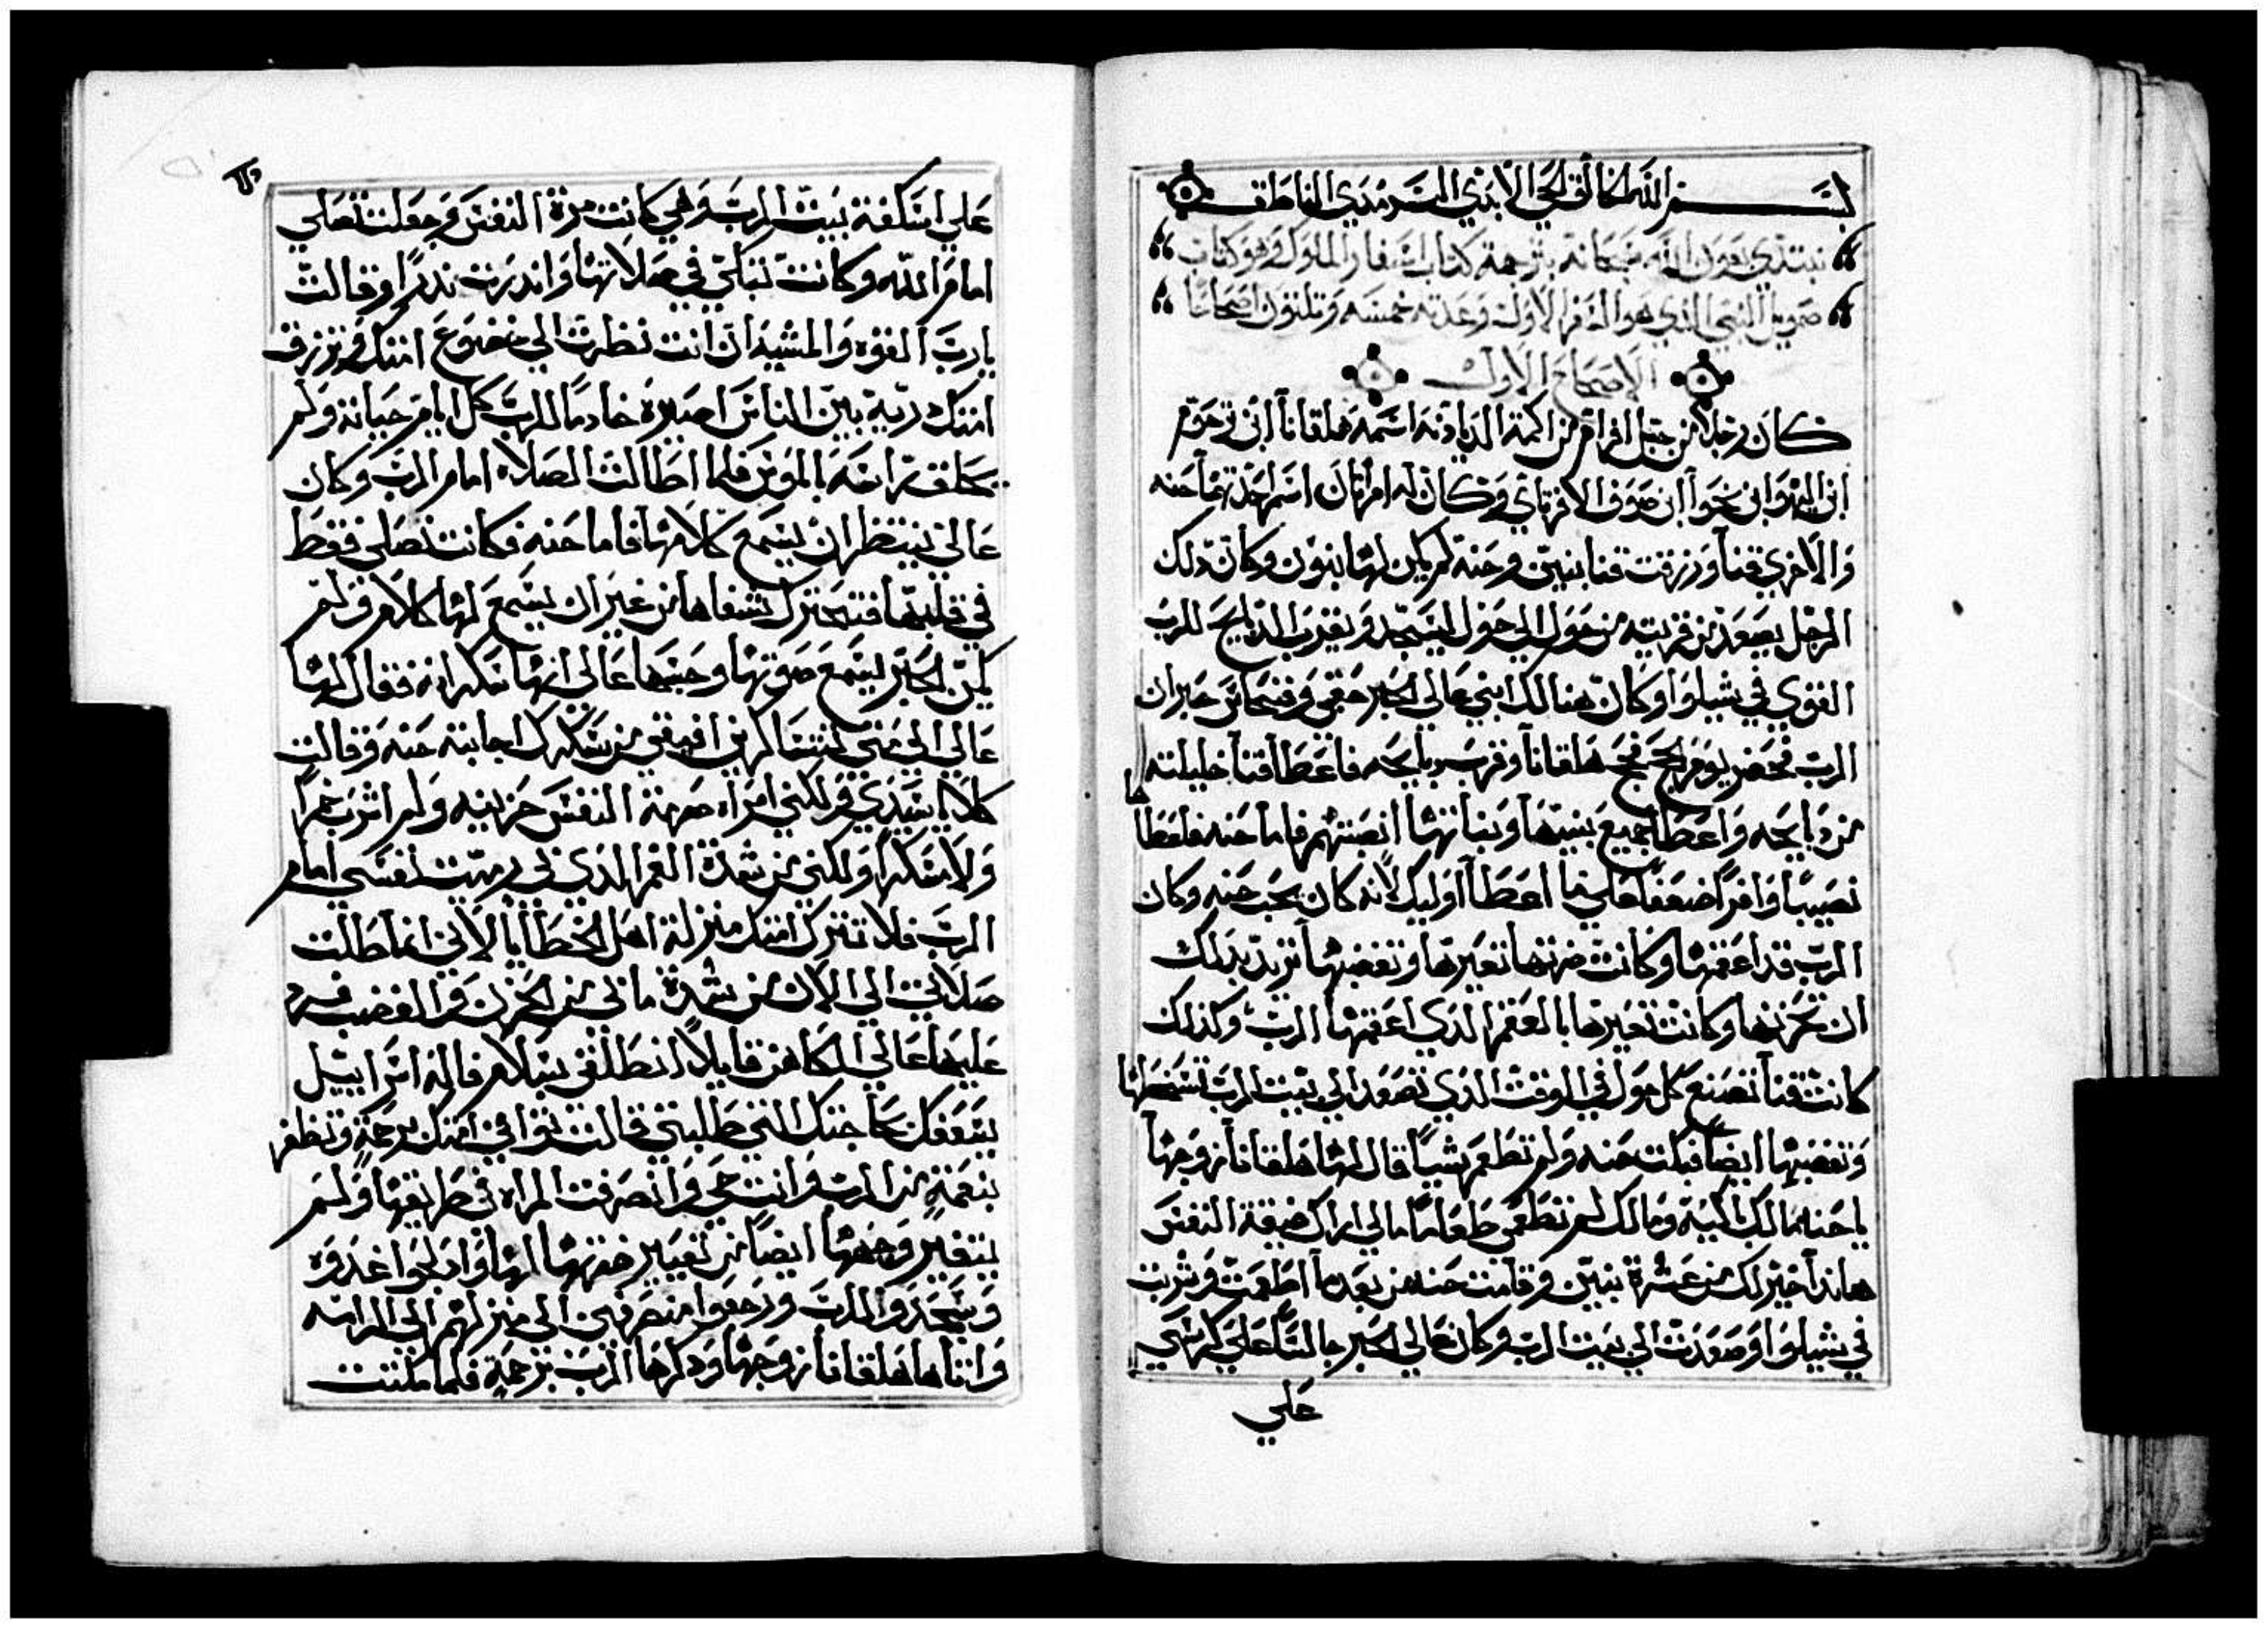 بسم الله الخالق الحي الابدي السرمدي الناطق
نبتدي بعون الله سبحانه بترجمة كتاب اسفار الملوك وهو كتاب
صمويل النبي الذي هو السفر الاول وعدته خمسه وتلتون اصحاحا
الاصحاح الاول
كان رجلا من جبل افرام من اكمة الديادنه اسمه هلقانا ابن يرحوم
ابن اليهو ابن نحوا ابن صوف الافرتاي وكان له امراتان اسم احدتهما حنه
والاخري فنا ورزقت فنا بنين وحنة لم يكن لها بنون وكان دلك
الرجل يصعد من قريته من حول الي حول ليسجد ويقرب الدبايح للرب
القوي في شيلوا وكان هنالك ابني عالي الحبر حفني وفنحاس حبران
الرب فحضر يوم الحج فحج هلقانا وقرب دبايحه فاعطا فنا خليلته
من دبايحه واعطا جميع بنيها وبناتها انصبتهم فاما حنه فاعطاها
نصيبا وافرا ضعفا علي ما اعطا اوليك لانه كان يحب حنه وكان
الرب قد اعقمها وكانت ضرتها تعيرها وتغضبها تريد بدلك
ان تحزنها وكانت تعيرها بالعقم الدي اعقمها الرب وكذلك
كانت فنا تصنع كل حول في الوقت الدي تصعد الي بيت الرب تسخطها
وتغضبها ايضا فبكت حنه ولم تطعم شيا قال لها هلقانا زوجها
يا حنه مالك باكية ومالك لم تطعمي طعاما مالي اراك ضيقة النفس
هاندا خير لك من عشرة بنين وقامت حنه من بعد ما اطعمت وشربت
في شيلوا وصعدت الي بيت الرب وكان عالي الحبر جالسا علي كرسي
علي
علي اسكفة بيت الرب وهي كانت مرة النفس وجعلت تصلي
امام الله وكانت تبكي في صلاتها واندرت ندرا وقالت
يارب القوه والمشيه ان انت نظرت الي خضوع امتك وترزق
امتك درية بين الناس اصيره خادما للرب كل ايام حياته ولم
يحلق راسه بالموس فلما اطالت الصلاه امام الرب وكان
عالي ينتظر ان يسمع كلامها فاما حنه فكانت تصلي فقط
في قلبها فتحترك شفاها من غير ان يسمع لها كلام ولم
يكن الحبر يسمع صوتها وحسبها عالي انها سكرانه فقال لها
عالي الي متي تتساكرين افيقي من سكرك اجابته حنه وقالت
كلا يا سيدي ولكني امراه صرمة النفس حزينه ولم اشرب خمرا
ولا مسكرا ولكني من شدة الغم الدي لي رميت نفسي امام
الرب فلا تترك امتك منزلة اهل الخطايا لاني انما طالت
صلاتي الي الان من شدة ما بي من الحزن والغضب فرد
عليها عالي الكاهن قايلا انطلقي بسلام فاله اسراييل
يسعفك بحاجتك التي طلبتي قالت توافي امتك برحمة وتظفر
بنعمة من الرب وانت حي وانصرفت المراه في طريقها ولم
يتغير وجهها ايضا من تعيير ضرتها لها وادلجوا غدوه
وسجدوا للرب ورجعوا منصرفين الي منزلهم الي الرامه
واتاها هلقانا زوجها ودكرها الرب برحمة فلما كملت